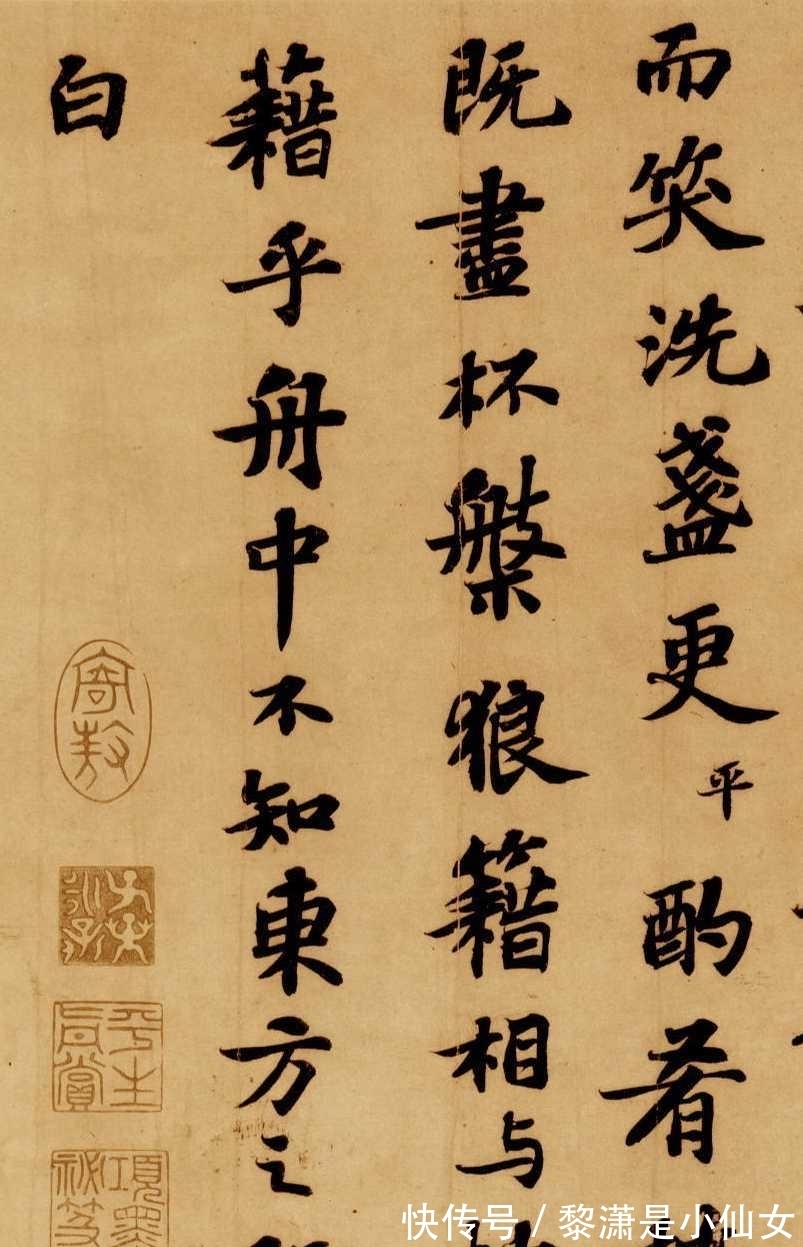 而笑洗盞更平酌肴
既盡杯槃狼籍相与
藉乎舟中不知東方之
白
平生真賞
快传号 / 黎潇是小仙女